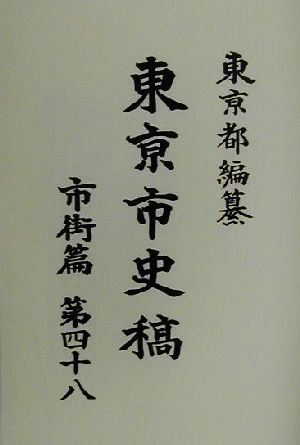 東京都編纂
東京市史稿
市街篇 第四十八